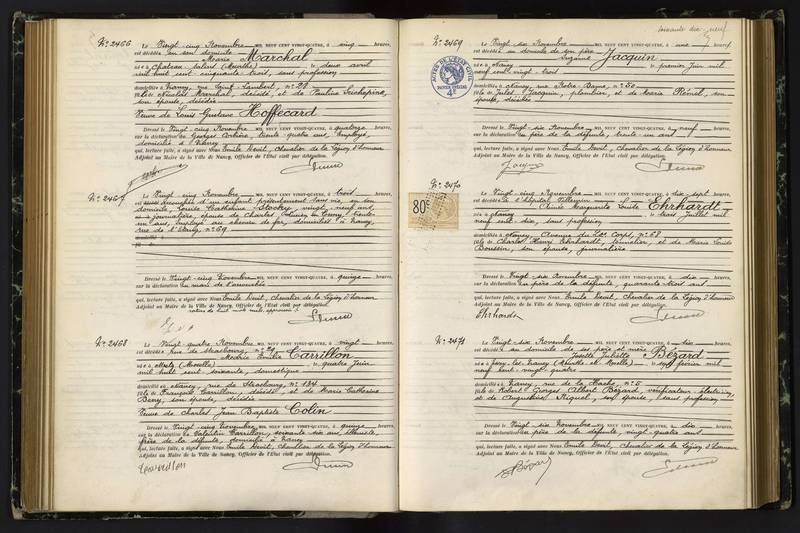 N° 2466
Le Vingt-cinq Novembre MIL NEUF CENT VINGT-QUATRE, à cinq heures,
est décédée en son domicile
Marie Marchal
née à Château-Salins (Meurthe) le deux avril
mil huit cent cinquante trois, sans profession
domiciliée à Nancy, rue Saint-Lambert, n° 28
fille de Nicolas Marchal, décédé, et de Pauline
son épouse, décédée
Veuve de Louis Gustave Hoffecard
Dressé le Vingt-cinq Novembre MIL NEUF CENT VINGT-QUATRE, à quatorze heures,
sur la déclaration de Georges trente-quatre ans, employé,
domicilié à Nancy
qui, lecture faite, a signé avec Nous Emile Chevalier de la Légion d'honneur
Adjoint au Maire de la Ville de Nancy, Officier de l'État civil par délégation.
N° 2467
Le Vingt-cinq Novembre MIL NEUF CENT VINGT-QUATRE, à trois heures,
est accouchée d'un enfant présentement sans vie, en son
domicile, Louise Catherine vingt-neuf ans,
journalière, épouse de Charles trente-
un ans, employé au chemin de fer, domiciliés à Nancy,
rue de n° 69
Dressé le Vingt-cinq Novembre MIL NEUF CENT VINGT-QUATRE, à quinze heures,
sur la déclaration du mari de l'accouchée
qui, lecture faite, a signé avec Nous Emile Chevalier de la Légion d'honneur
Adjoint au Maire de la Ville de Nancy, Officier de l'État civil par délégation.
N° 2468
Le Vingt-quatre Novembre MIL NEUF CENT VINGT-QUATRE, à vingt heures,
est décédée rue de Strasbourg, n°
Emilie Carrillon
née à Metz (Moselle) le quatre Juin
mil huit cent soixante, domestique
domiciliée à Nancy, rue de Strasbourg, n° 134
fille de François Carrillon, décédé, et de Marie Catherine
son épouse, décédée
Veuve de Charles Jean Baptiste Colin
Dressé le Vingt-cinq Novembre MIL NEUF CENT VINGT-QUATRE, à quinze heures,
sur la déclaration de Valentin Carrillon, soixante six ans,
frère de la défunte, domicilié à Nancy
qui, lecture faite, a signé avec Nous Emile Chevalier de la Légion d'honneur
Adjoint au Maire de la Ville de Nancy, Officier de l'État civil par délégation.
Carrillon
soixante dix-neuf
N° 2469
Le Vingt-six Novembre MIL NEUF CENT VINGT-QUATRE, à une heures,
est décédée au domicile de son père
Suzanne Jacquin
née à Nancy le premier Juin mil
neuf cent vingt trois
domiciliée à Nancy, rue Notre-Dame, n° 50
fille de Jules Jacquin, plombier, et de Maria son
épouse, décédée
Dressé le Vingt-six Novembre MIL NEUF CENT VINGT-QUATRE, à neuf heures,
sur la déclaration du père de la défunte, trente-un ans
qui, lecture faite, a signé avec Nous Emile Chevalier de la Légion d'honneur
Adjoint au Maire de la Ville de Nancy, Officier de l'État civil par délégation.
Jacquin
80c
N° 2470
Le Vingt-cinq Novembre MIL NEUF CENT VINGT-QUATRE, à dix sept heures,
est décédée à l'hôpital Villemin
Marguerite Louise Ehrhardt
née à Nancy le trois Juillet mil
neuf cent dix, sans profession
domiciliée à Nancy, Avenue du XXe Corps, n° 68
fille de Charles Henri Ehrhardt, tonnelier, et de Marie Louise
son épouse, journalière
Dressé le Vingt-six Novembre MIL NEUF CENT VINGT-QUATRE, à dix heures,
sur la déclaration du père de la défunte, quarante trois ans
qui, lecture faite, a signé avec Nous Emile Chevalier de la Légion d'honneur
Adjoint au Maire de la Ville de Nancy, Officier de l'État civil par délégation.
Ehrhardt
N° 2471
Le Vingt-six Novembre MIL NEUF CENT VINGT-QUATRE, à heures,
est décédée au domicile de ses père et mère
Josette Juliette Bézard
née à Jarville-lez-Nancy (Meurthe et Moselle) le sept février mil
neuf cent vingt-quatre
domiciliée à Nancy, rue de la Hache, n° 5
fille de Robert Georges Albert Bézard, vérificateur électricien,
et de Augustine son épouse, sans profession
Dressé le Vingt-six Novembre MIL NEUF CENT VINGT-QUATRE, à dix heures,
sur la déclaration du père de la défunte, vingt-quatre ans
qui, lecture faite, a signé avec Nous Emile Chevalier de la Légion d'honneur
Adjoint au Maire de la Ville de Nancy, Officier de l'État civil par délégation.
Bézard